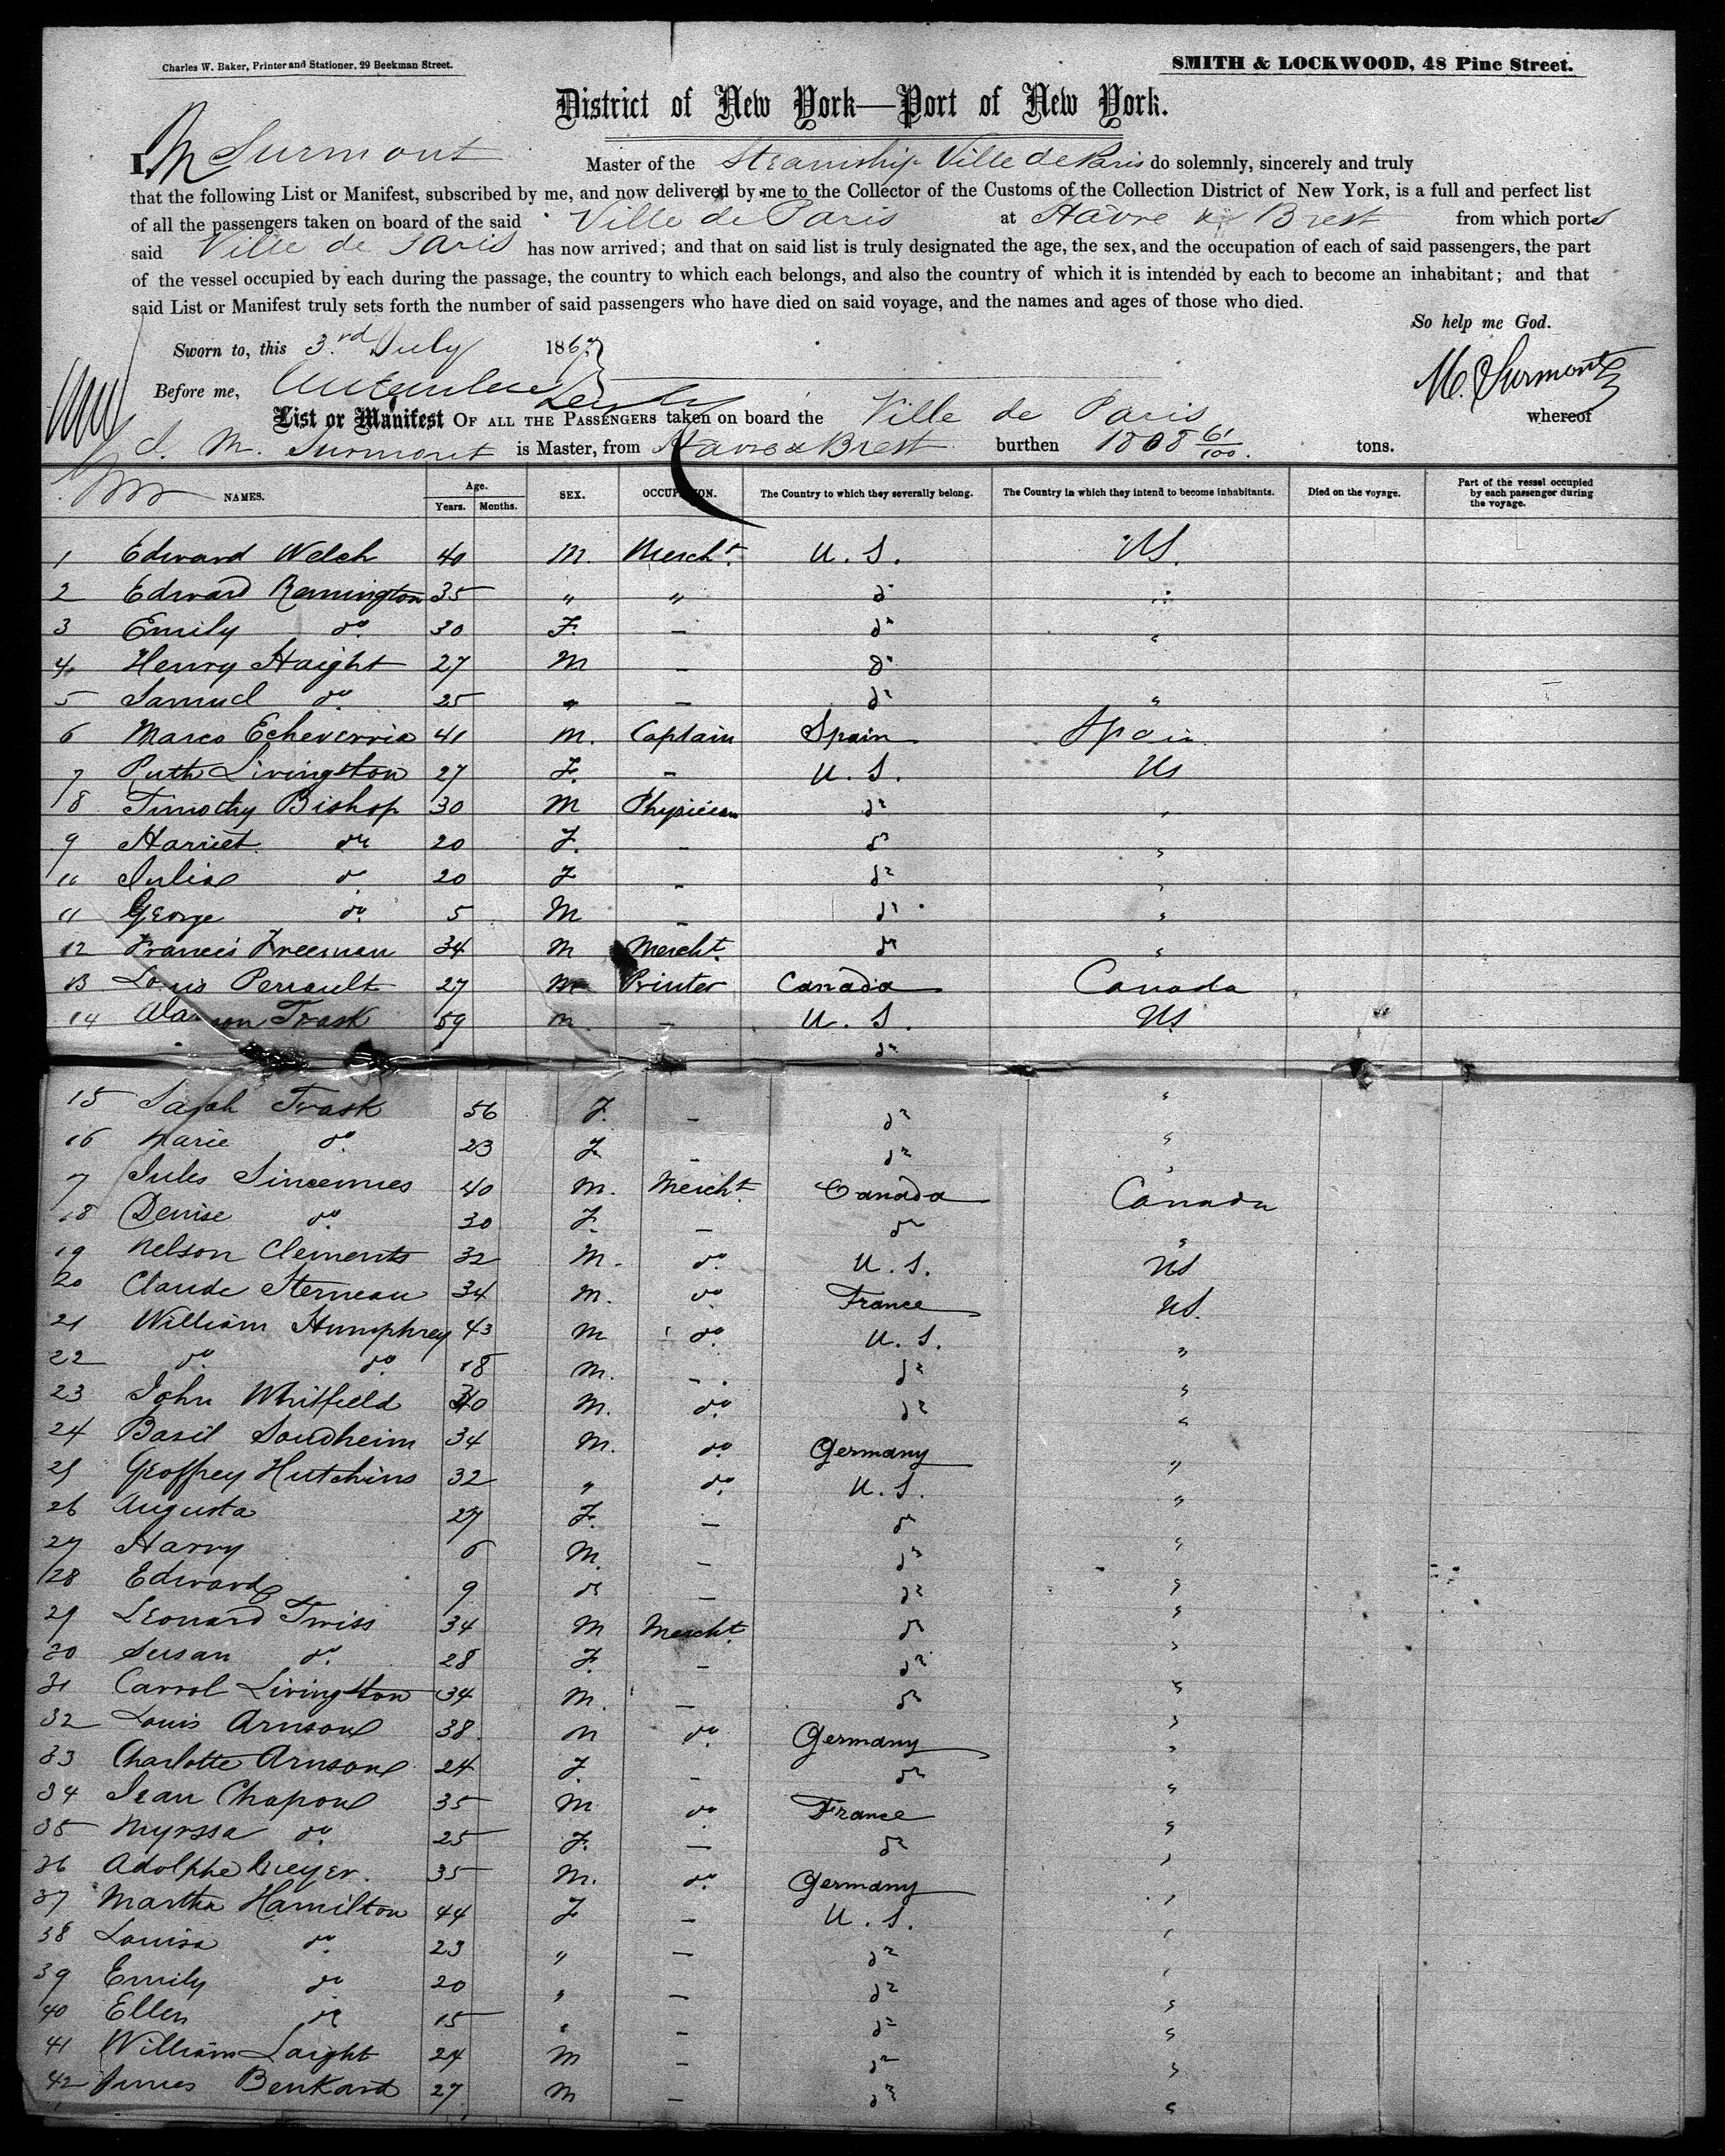 Charles W. Baker, Printer and Stationer, 29 Beekman Street.
SMITH & LOCKWOOD, 48 Pine Street.
District of New York—Port of New York.
I, M Surmont Master of the Steamship Ville de Paris do solemnly, sincerely and truly
that the following List or Manifest, subscribed by me, and now delivered by me to the Collector of the Customs of the Collection District of New York, is a full and perfect list
of all the passengers taken on board of the said Ville de Paris at Hâvre & Brest from which ports
said Ville de Paris has now arrived; and that on said list is truly designated the age, the sex, and the occupation of each of said passengers, the part
of the vessel occupied by each during the passage, the country to which each belongs, and also the country of which it is intended by each to become an inhabitant; and that
said List or Manifest truly sets forth the number of said passengers who have died on said voyage, and the names and ages of those who died.
So help me God.
Sworn to, this 3rd July 1867
M. Surmont
Before me,
List or Manifest OF ALL THE PASSENGERS taken on board the Ville de Paris whereof
M. Surmont is Master, from Havre & Brest burthen 1808 61/100 tons.
NAMES. Age. Years. Months. SEX. OCCUPATION. The Country to which they severally belong. The Country in which they intend to become inhabitants. Died on the voyage. Part of the vessel occupied by each passenger during the voyage.
1 Edward Welch 40 M. Mercht. U. S. US.
2 Edward Remington 35 " " do "
3 Emily do 30 F. — do "
4 Henry Haight 27 M — do
5 Samuel do 25 " — do "
6 Marco Echeverria 41 M. Captain Spain Spain
7 Ruth Livingston 27 F. — U. S. US
8 Timothy Bishop 30 M Physician do "
9 Harriet do 20 F. — do "
10 Julia do 20 F — do "
11 George do 5 M — do "
12 Francis Freeman 34 M Mercht. do "
13 Louis Perrault 27 M Printer Canada Canada
14 Alanson Trask 59 M. — U. S. US
do
15 Sarah Trask 56 F. — do "
16 Marie do 23 F — do "
17 Jules Sincennes 40 M. Mercht. Canada Canada
18 Denise do 30 F. — do "
19 Nelson Clements 32 M. do U. S. US
20 Claude Sterneau 34 M. do France US.
21 William Humphrey 43 M do U. S. "
22 do do 18 M. — do "
23 John Whitfield 40 M. do do "
24 Basil Soudheim 34 M. do Germany "
25 Geoffrey Hutchins 32 " do U. S. "
26 Augusta 27 F. — do "
27 Harry 6 M. — do "
28 Edward 9 do — do "
29 Leonard Twiss 34 M Mercht. do "
30 Susan do 28 F. — do "
31 Carrol Livingston 34 M. — do "
32 Louis Arnson 38 M do Germany "
33 Charlotte Arnson 24 F. — do "
34 Jean Chapon 35 M do France "
35 Myrssa do 25 F. — do "
36 Adolphe Meyer 35 M. do Germany "
37 Martha Hamilton 44 F — U. S. "
38 Louisa do 23 " — do "
39 Emily do 20 " — do "
40 Ellen do 15 " — do "
41 William Laight 24 M — do "
42 James Benkard 27 M — do "